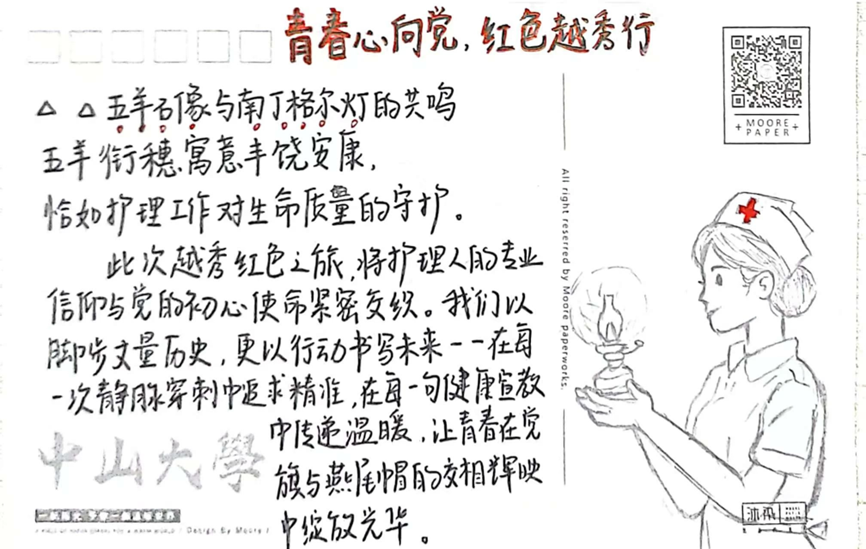 青春心向党，红色越秀行
△ △ 五羊石像与南丁格尔灯的共鸣
五羊衔穗寓意丰饶安康，
恰如护理工作对生命质量的守护。
此次越秀红色之旅，将护理人的专业
信仰与党的初心使命紧密交织。我们以
脚步丈量历史，更以行动书写未来——在每
一次静脉穿刺中追求精准，在每一句健康宣教
中传递温暖，让青春在党
旗与燕尾帽的交相辉映
中绽放光华。
中山大學
Design By Moore
MOORE
PAPER
All right reserred by Moore paperworks.